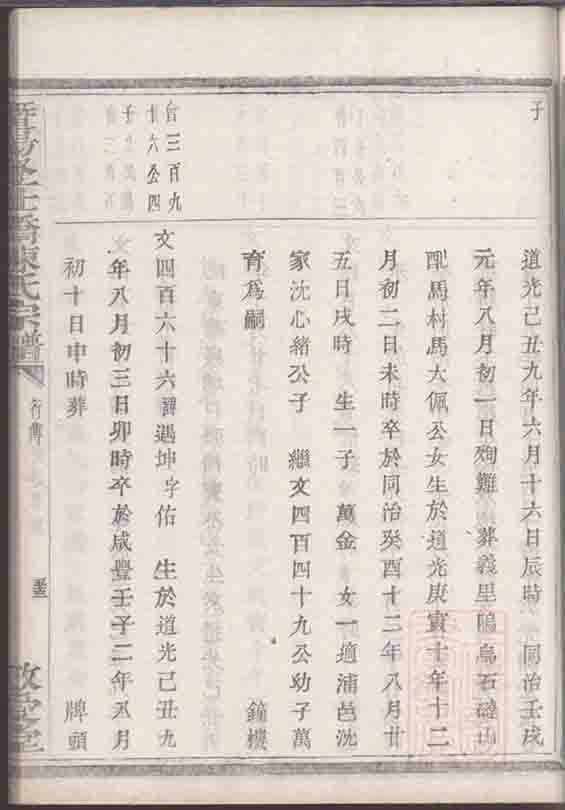 子
道光己丑九年六月十六日辰時 同治壬戌
元年八月初一日殉難 葬義里塢烏石磡山
配馬村馬大佩公女生於道光庚寅十年十二
月初二日未時卒於同治癸酉十二年八月廿
五日戌時 生一子 萬金 女一適浦邑沈
家沈心緒公子 繼文四百四十九公幼子萬
育為嗣 鐘樓
官三百九
十六公四
子
文四百六十六諱遇坤字佑 生於道光己丑九
年八月初三日卯時卒於咸豐壬子二年八月
初十日申時葬 牌頭
陳氏宗譜
行傳